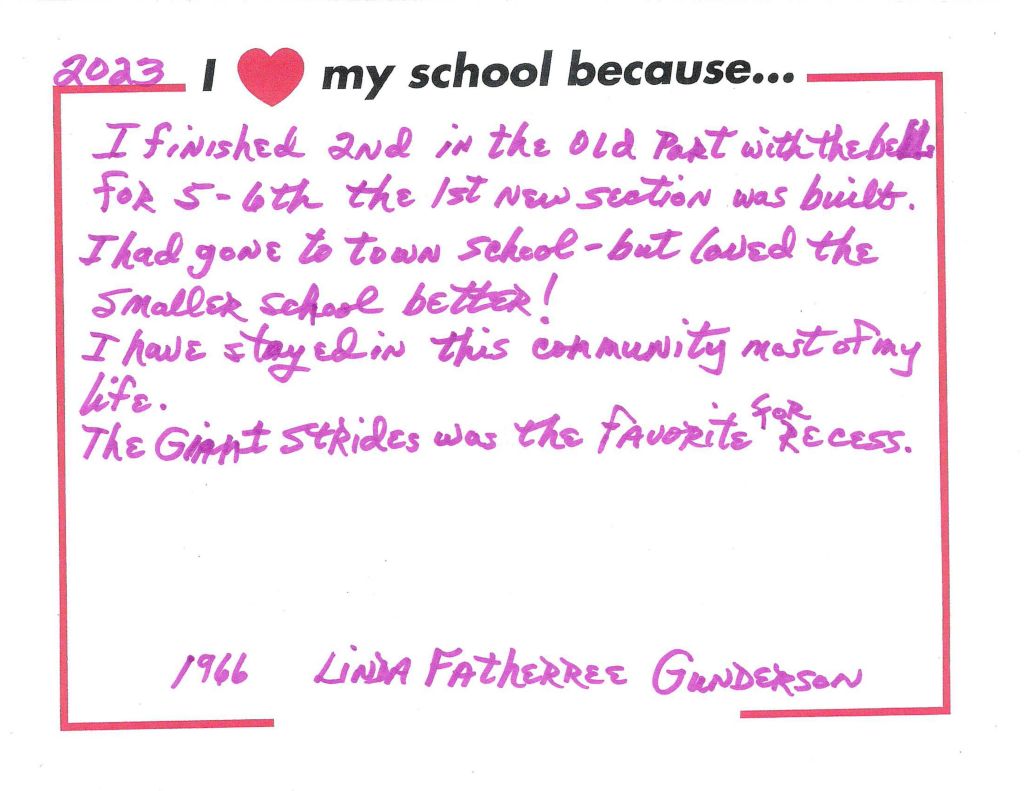 2023 I ❤ my school because...
I finished 2nd in the old part with the bell.
for 5-6th the 1st new section was built.
I had gone to town school - but loved the
smaller school better!
I have stayed in this community most of my
life.
The Giant Strides was the favorite for recess.
1966 Linda Fatherree Gunderson